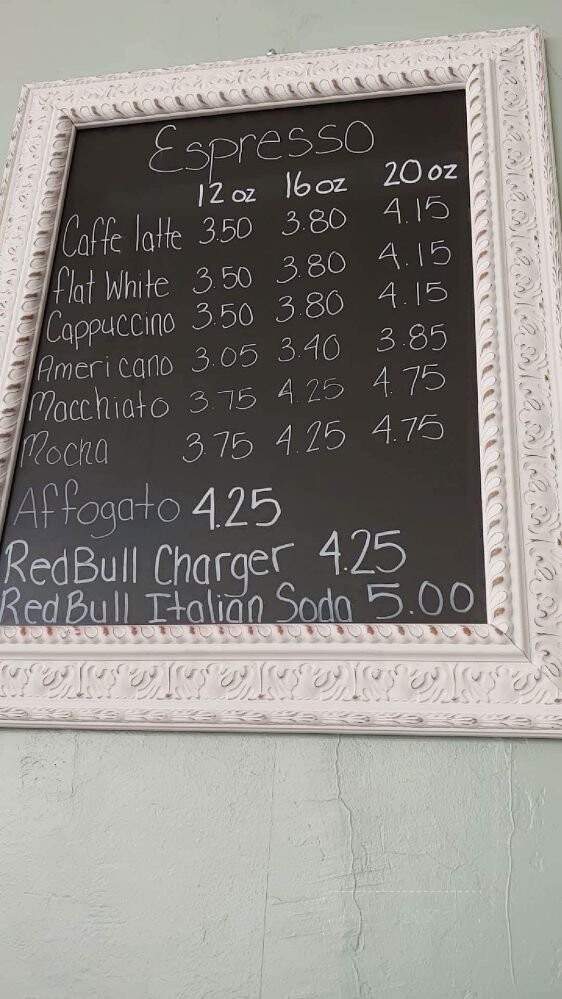 Espresso
12 oz 16 oz 20 oz
Caffe latte 3.50 3.80 4.15
flat White 3.50 3.80 4.15
Cappuccino 3.50 3.80 4.15
Americano 3.05 3.40 3.85
Macchiato 3.75 4.25 4.75
Mocha 3.75 4.25 4.75
Affogato 4.25
RedBull Charger 4.25
RedBull Italian Soda 5.00